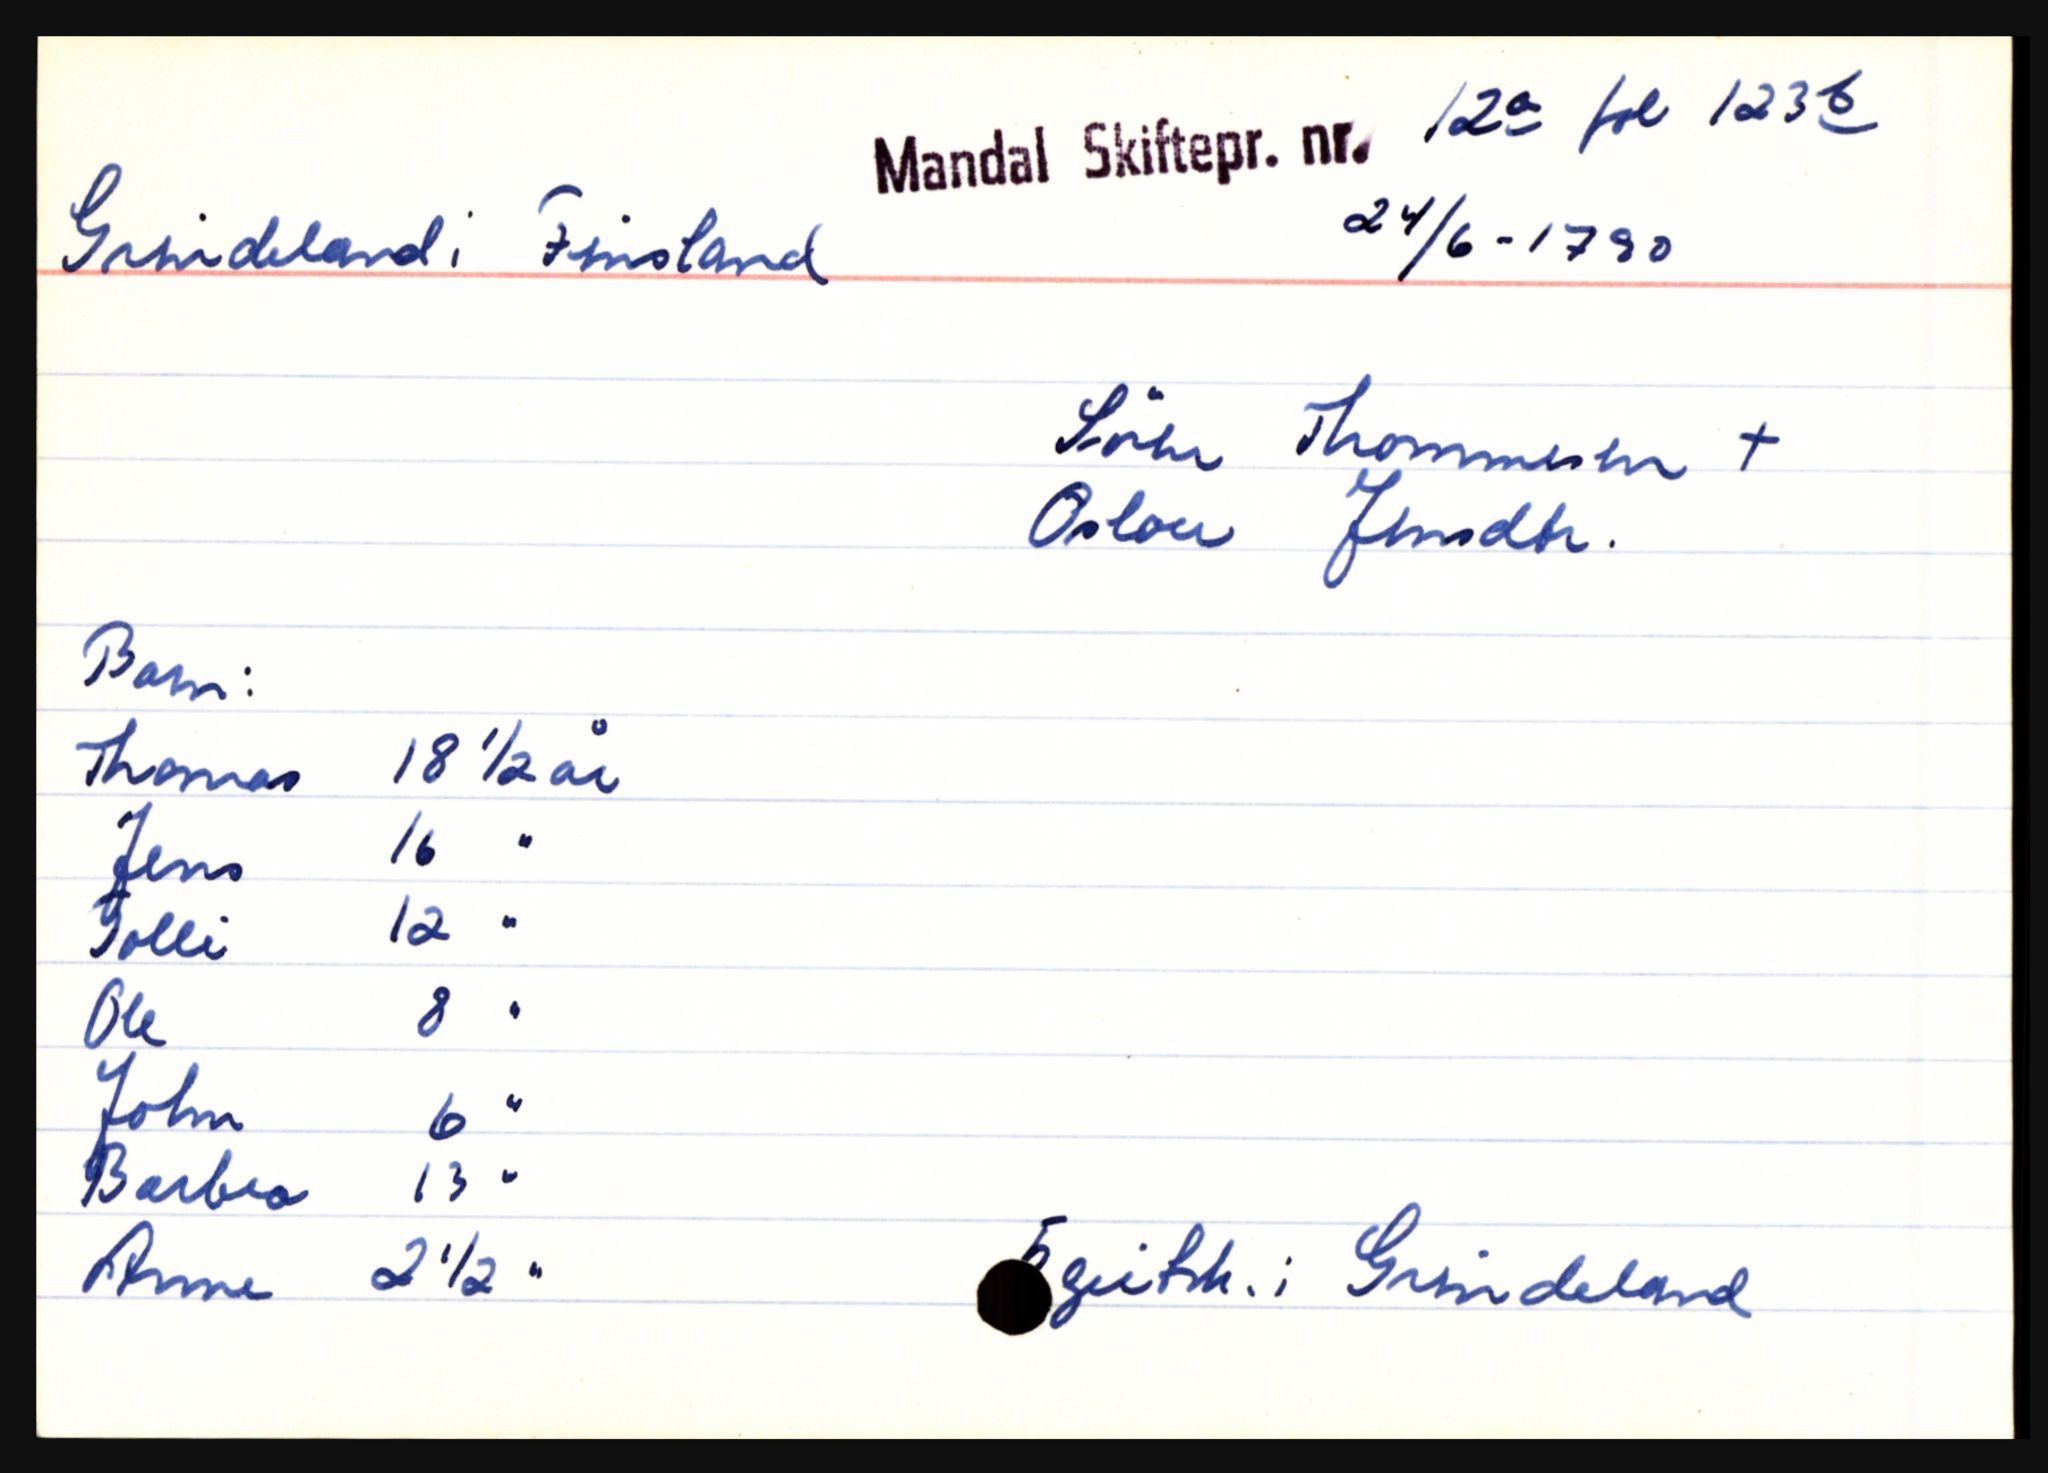 Mandal Skiftepr. nr. 12a fol 123b
Grindeland i Finsland 24/6 - 1790
Sören Thommesen +
Oslou Jensdtr.
Barn:
Thomas 18 1/2 år
Jens 16 "
Tolli 12 "
Ole 8 "
John 6 "
Barbra 13 "
Anne 2 1/2 "
5 geitsk. i Grindeland